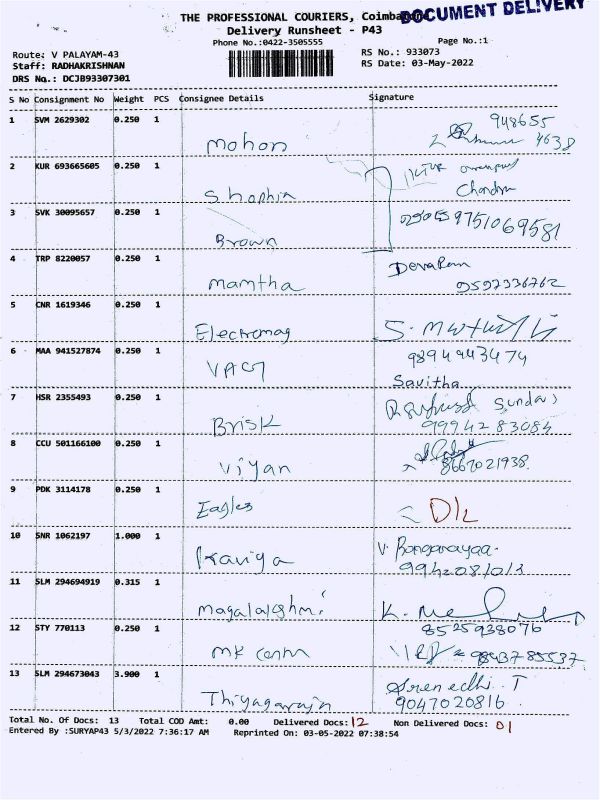 THE PROFESSIONAL COURIERS, Coimbatore
DOCUMENT DELIVERY
Delivery Runsheet - P43
Phone No.:0422-3505555
Page No.:1
Route: V PALAYAM-43
RS No.: 933073
Staff: RADHAKRISHNAN
RS Date: 03-May-2022
DRS No.: DCJB93307301
S No Consignment No Weight PCS Consignee Details Signature
1 SVM 2629302 0.250 1 Mohon 948655
4638
2 KUR 693665605 0.250 1 Shophia
Chandra
3 SVK 30095657 0.250 1 Brown 9751069581
4 TRP 8220057 0.250 1 Mamtha
9597336762
5 CNR 1619346 0.250 1 Electromag
6 MAA 941527874 0.250 1 VACT 9894943474
Savitha
7 HSR 2355493 0.250 1 Brisk Sundar
9994283084
8 CCU 501166100 0.250 1 Viyan
8667021938
9 PDK 3114178 0.250 1 Eagles D/L
10 SNR 1062197 1.000 1 Kaviya V. Rangarayaa
9942081013
11 SLM 294694919 0.315 1 Magalakshmi K.
12 STY 770113 0.250 1 MK 8525938076
9843785537
13 SLM 294673043 3.900 1 Thiyagarajn T
9047020816
Total No. Of Docs: 13 Total COD Amt: 0.00 Delivered Docs: 12 Non Delivered Docs: 01
Entered By :SURYAP43 5/3/2022 7:36:17 AM Reprinted On: 03-05-2022 07:38:54